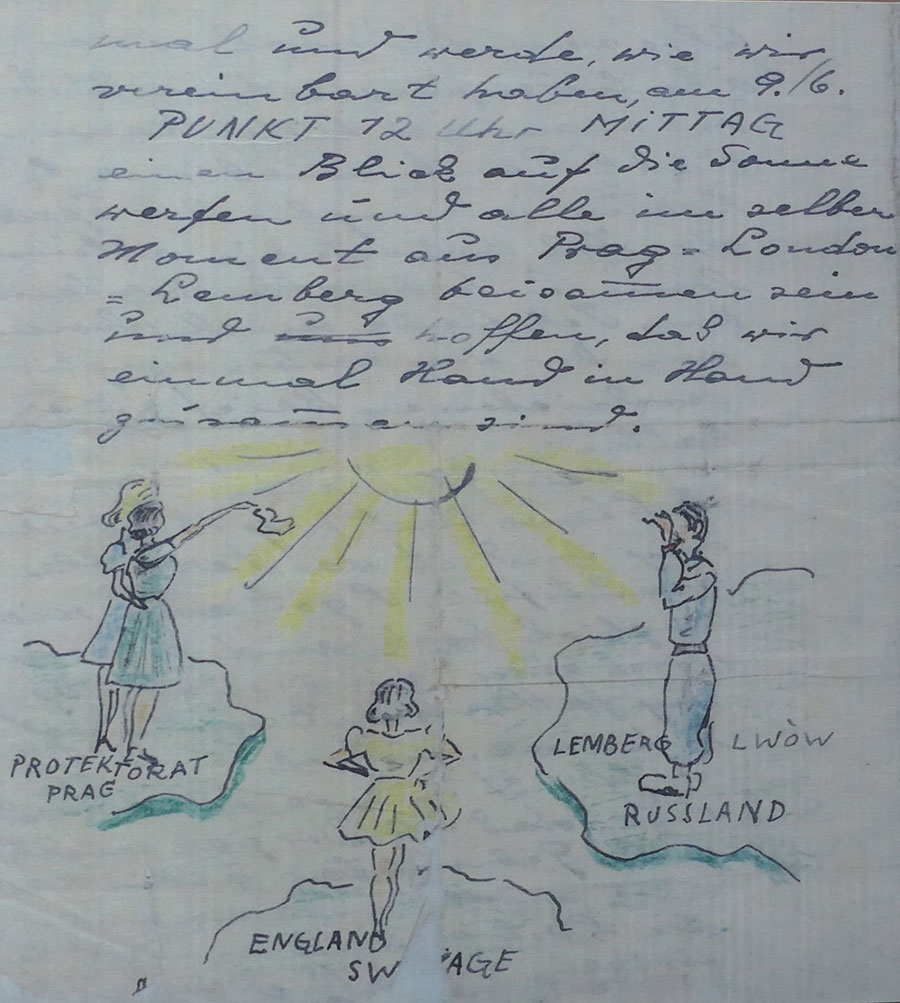 mal und werde, wie wir
vereinbart haben, am 9./6.
PUNKT 12 Uhr MiTTAG
einen Blick auf die Sonne
werfen und alle im selben
Moment aus Prag = London
= Lemberg beisam̅en sein
und uns hoffen, daß wir
einmal Hand in Hand
zusam̅en sind.
PROTEKTORAT
PRAG
LEMBERG LWÒW
RUSSLAND
ENGLAND
SW AGE